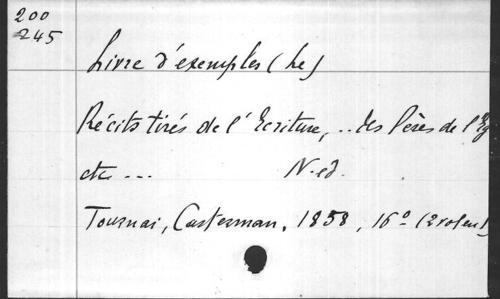 200
245
Livre d'exemples (Le)
Récits tirés de l'Ecriture, .. des Pères de l'Eg
etc ... N. ed.
Tournai, Casterman, 1858, 16° (2 vol en 1)